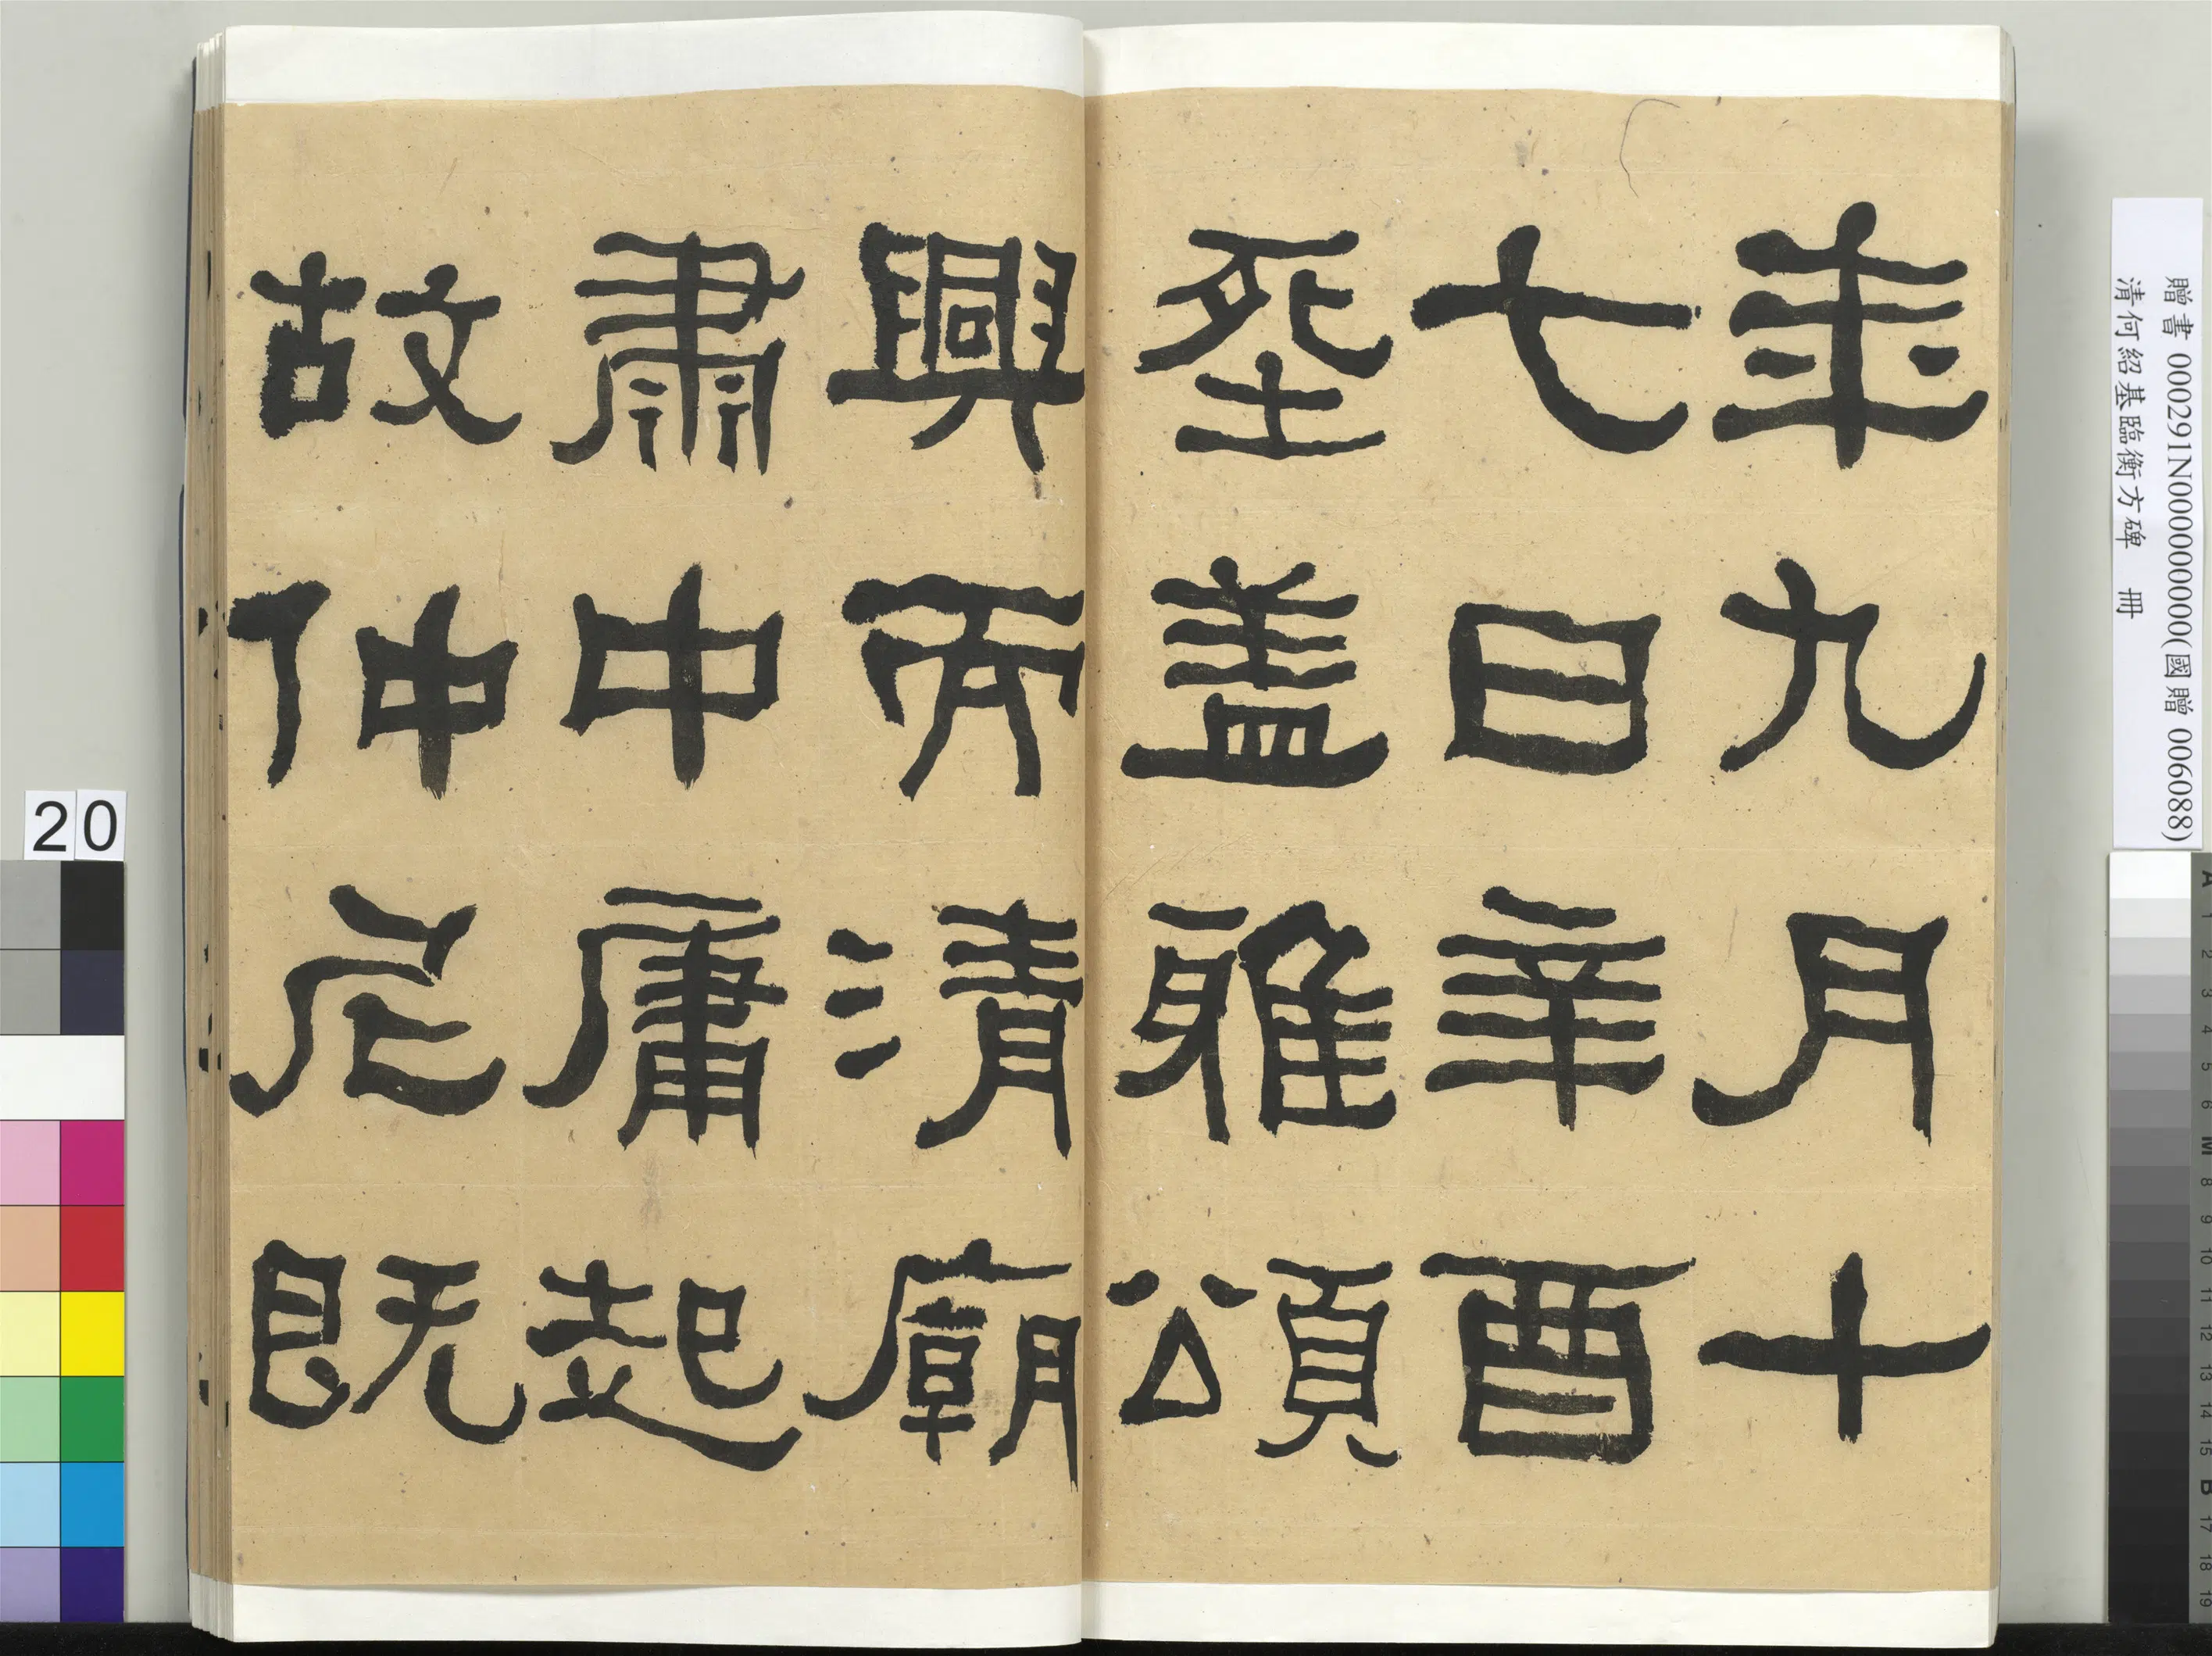 年九月十
七日辛酉
塟盖雅頌
興而清廟
肅中庸起
故仲尼既
贈書 000291N000000000(國贈 006088)
清何紹基臨衡方碑 冊
20
A 1 2 3 4 5 6 M 8 9 10 11 12 13 14 15 B 17 18 19